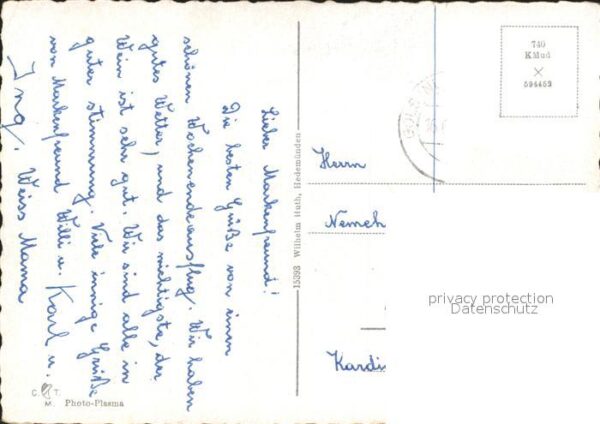 Lieber Markenfreund!
Die besten Grüße von einem
schönen Wochenendeausflug. Wir haben
gutes Wetter, und das wichtigste, der
Wein ist sehr gut. Wir sind alle in
guter stimmung. Viele innige Grüße
von Markenfreund Willi u. Karl u.
Ing. Weiss Mama
15393 Wilhelm Huth, Hedemünden
740
KMud
X
594453
Herrn
Nemeh
Kardi
privacy protection
Datenschutz
C. T.
M. Photo-Plasma